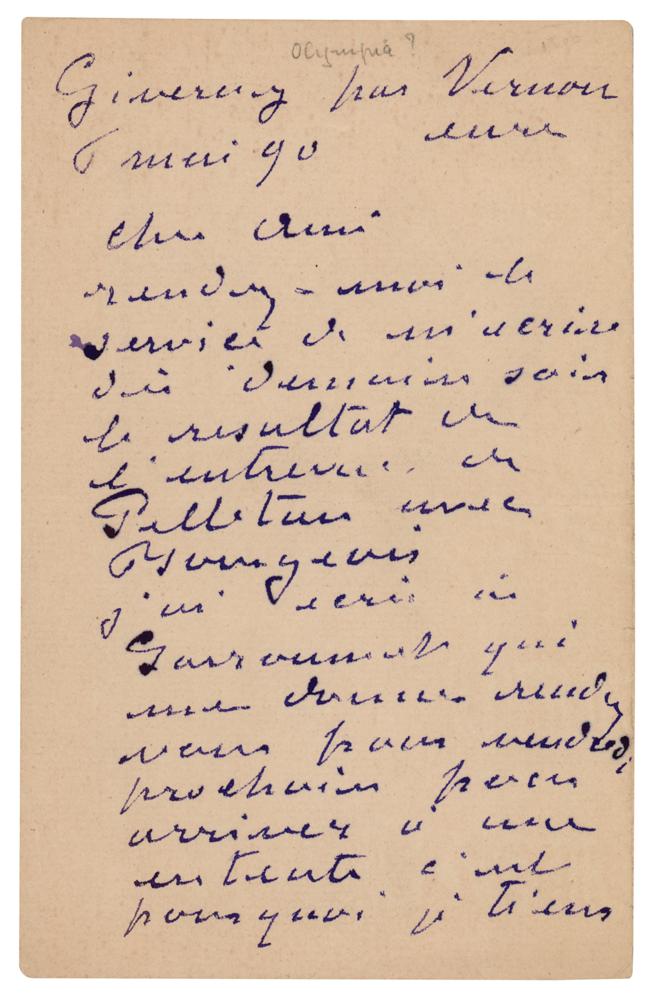 Olympia ?
Giverny par Vernon
eure
mai 90
cher Ami
rendez-moi le
service de m'ecrire
dès demain soir
le resultat de
l'entrevue de
Pelletan avec
Bourgeois
j'ai ecrit à
Larroumet qui
me donne rendez
vous pour vendredi
prochain pour
arriver à une
entente c'est
pourquoi je tiens